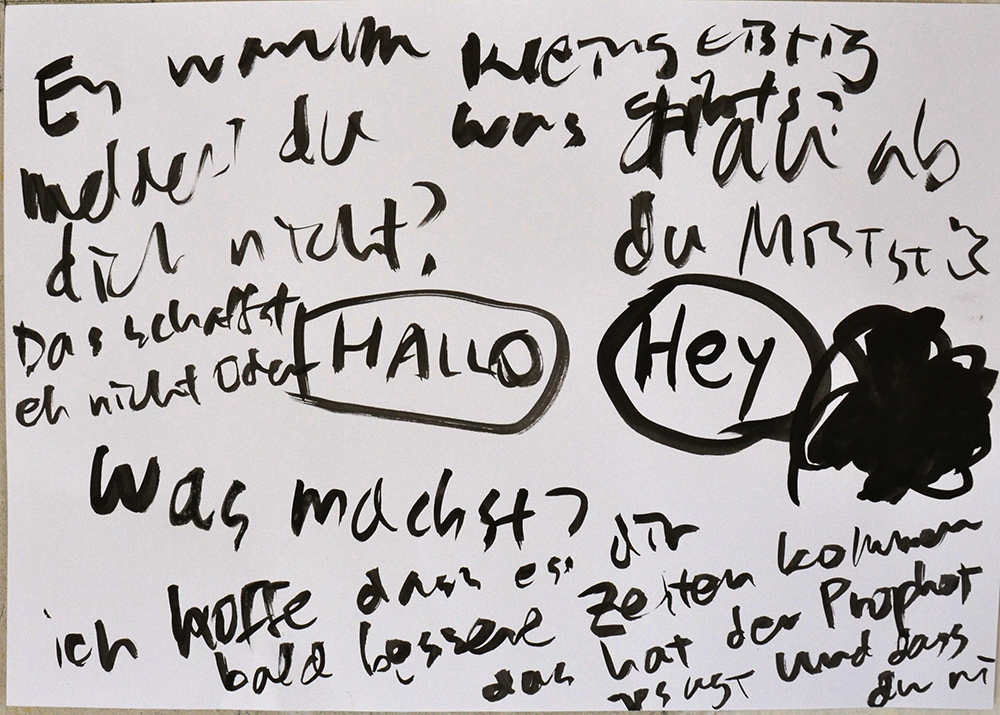 Ey warum
meldest du
dich nicht?
kleingeistig
was gibts?
Hau ab
du Mist
Das schaffst
eh nicht Oder
HALLO
Hey
Was machst?
ich hoffe dass es dir
bald bessere Zeiten kommen
das hat der Prophet
und dass
du ni